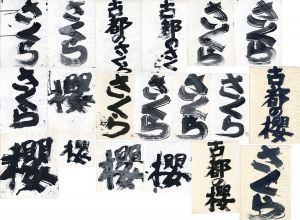 さくら
さくら
古都のさくら
古都のさくら
さくら
さくら
さくら
さくら
櫻
さくら
さくら
さくら
さくら
古都の櫻
櫻
櫻
櫻
櫻
古都の櫻
さくら